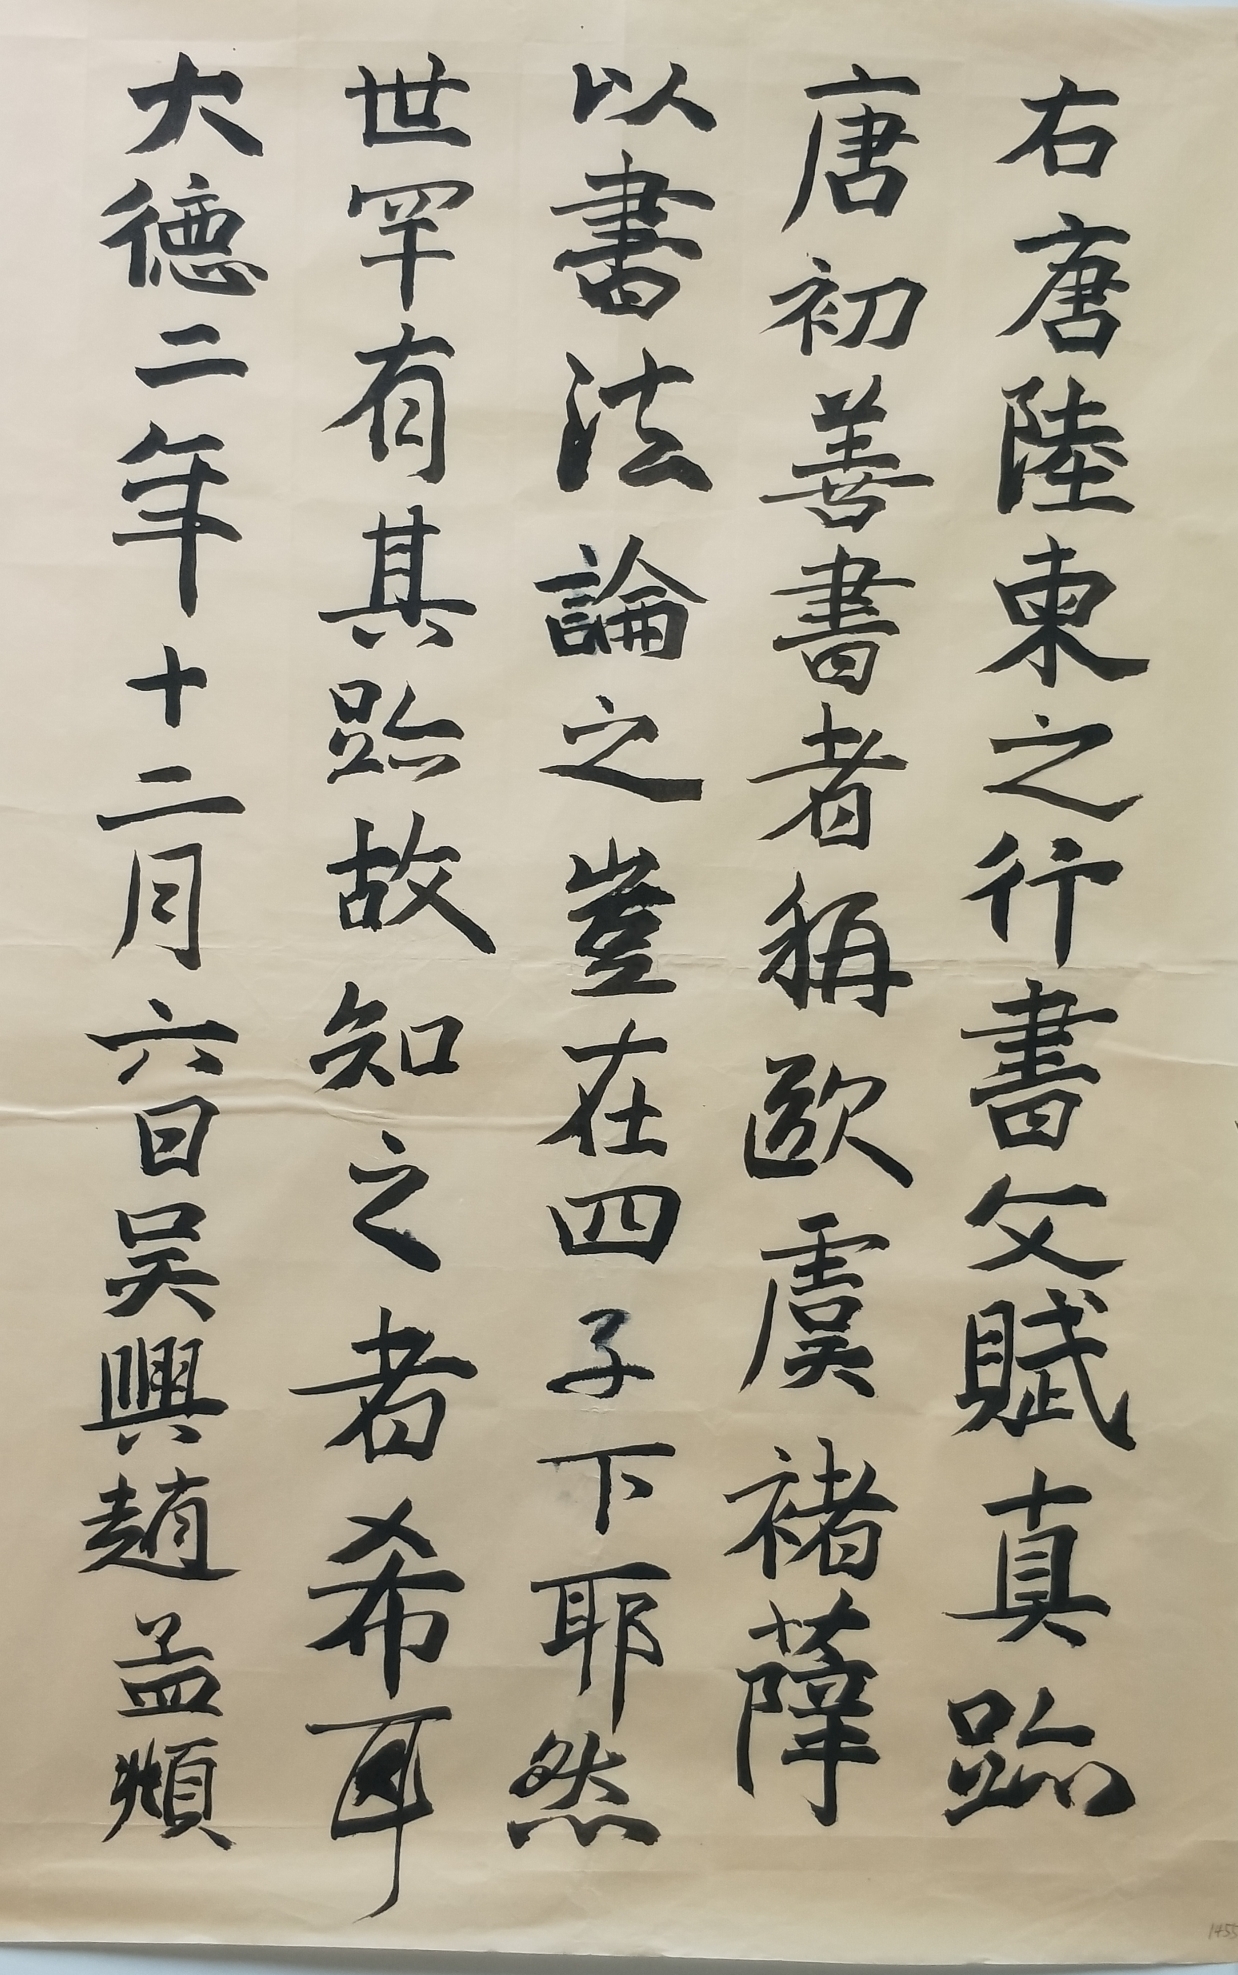 右唐陸柬之行書文賦真跡
唐初善書者稱歐虞褚薛
以書法論之豈在四子下耶然
世罕有其跡故知之者希耳
大德二年十二月六日吳興趙孟頫
1455